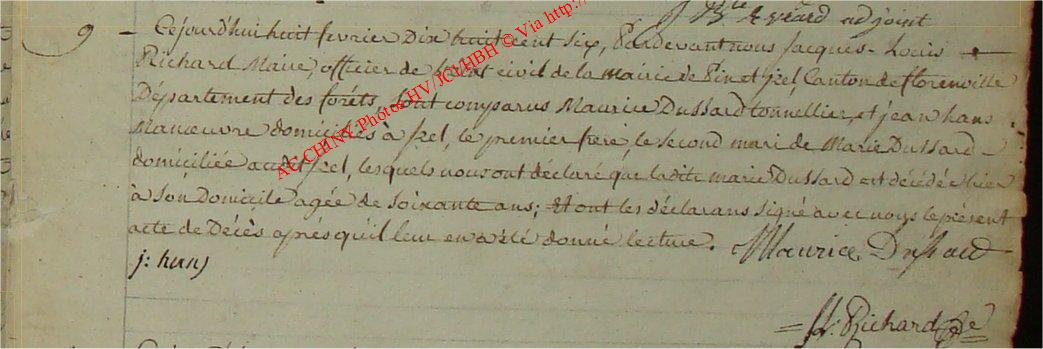 J Bte Evrard adjoint
9 - Cejourd'hui huit fevrier Dix huit cent six, Pardevant nous Jacques-Louis
Richard Maire, officier de l'état civil de la mairie de Pin et Izel, Canton de florenville
Département des forêts, sont comparus Maurice Dussard tonnellier, et jean hans
Manœuvre domiciliés à Izel, le premier frère, le second mari de Marie Dussard
domiciliée audit Izel, lesquels nous ont déclaré que ladite marie Dussard est décédée hier
à son Domicile agée de soixante ans; Et ont les déclarans signé avec nous le présent
acte de Décès après qu'il leur en a été donné lecture. Maurice Dussard
j: hans
= J L: Richard =
AC CHINY Photos HV/JCVHBH © Via http:/